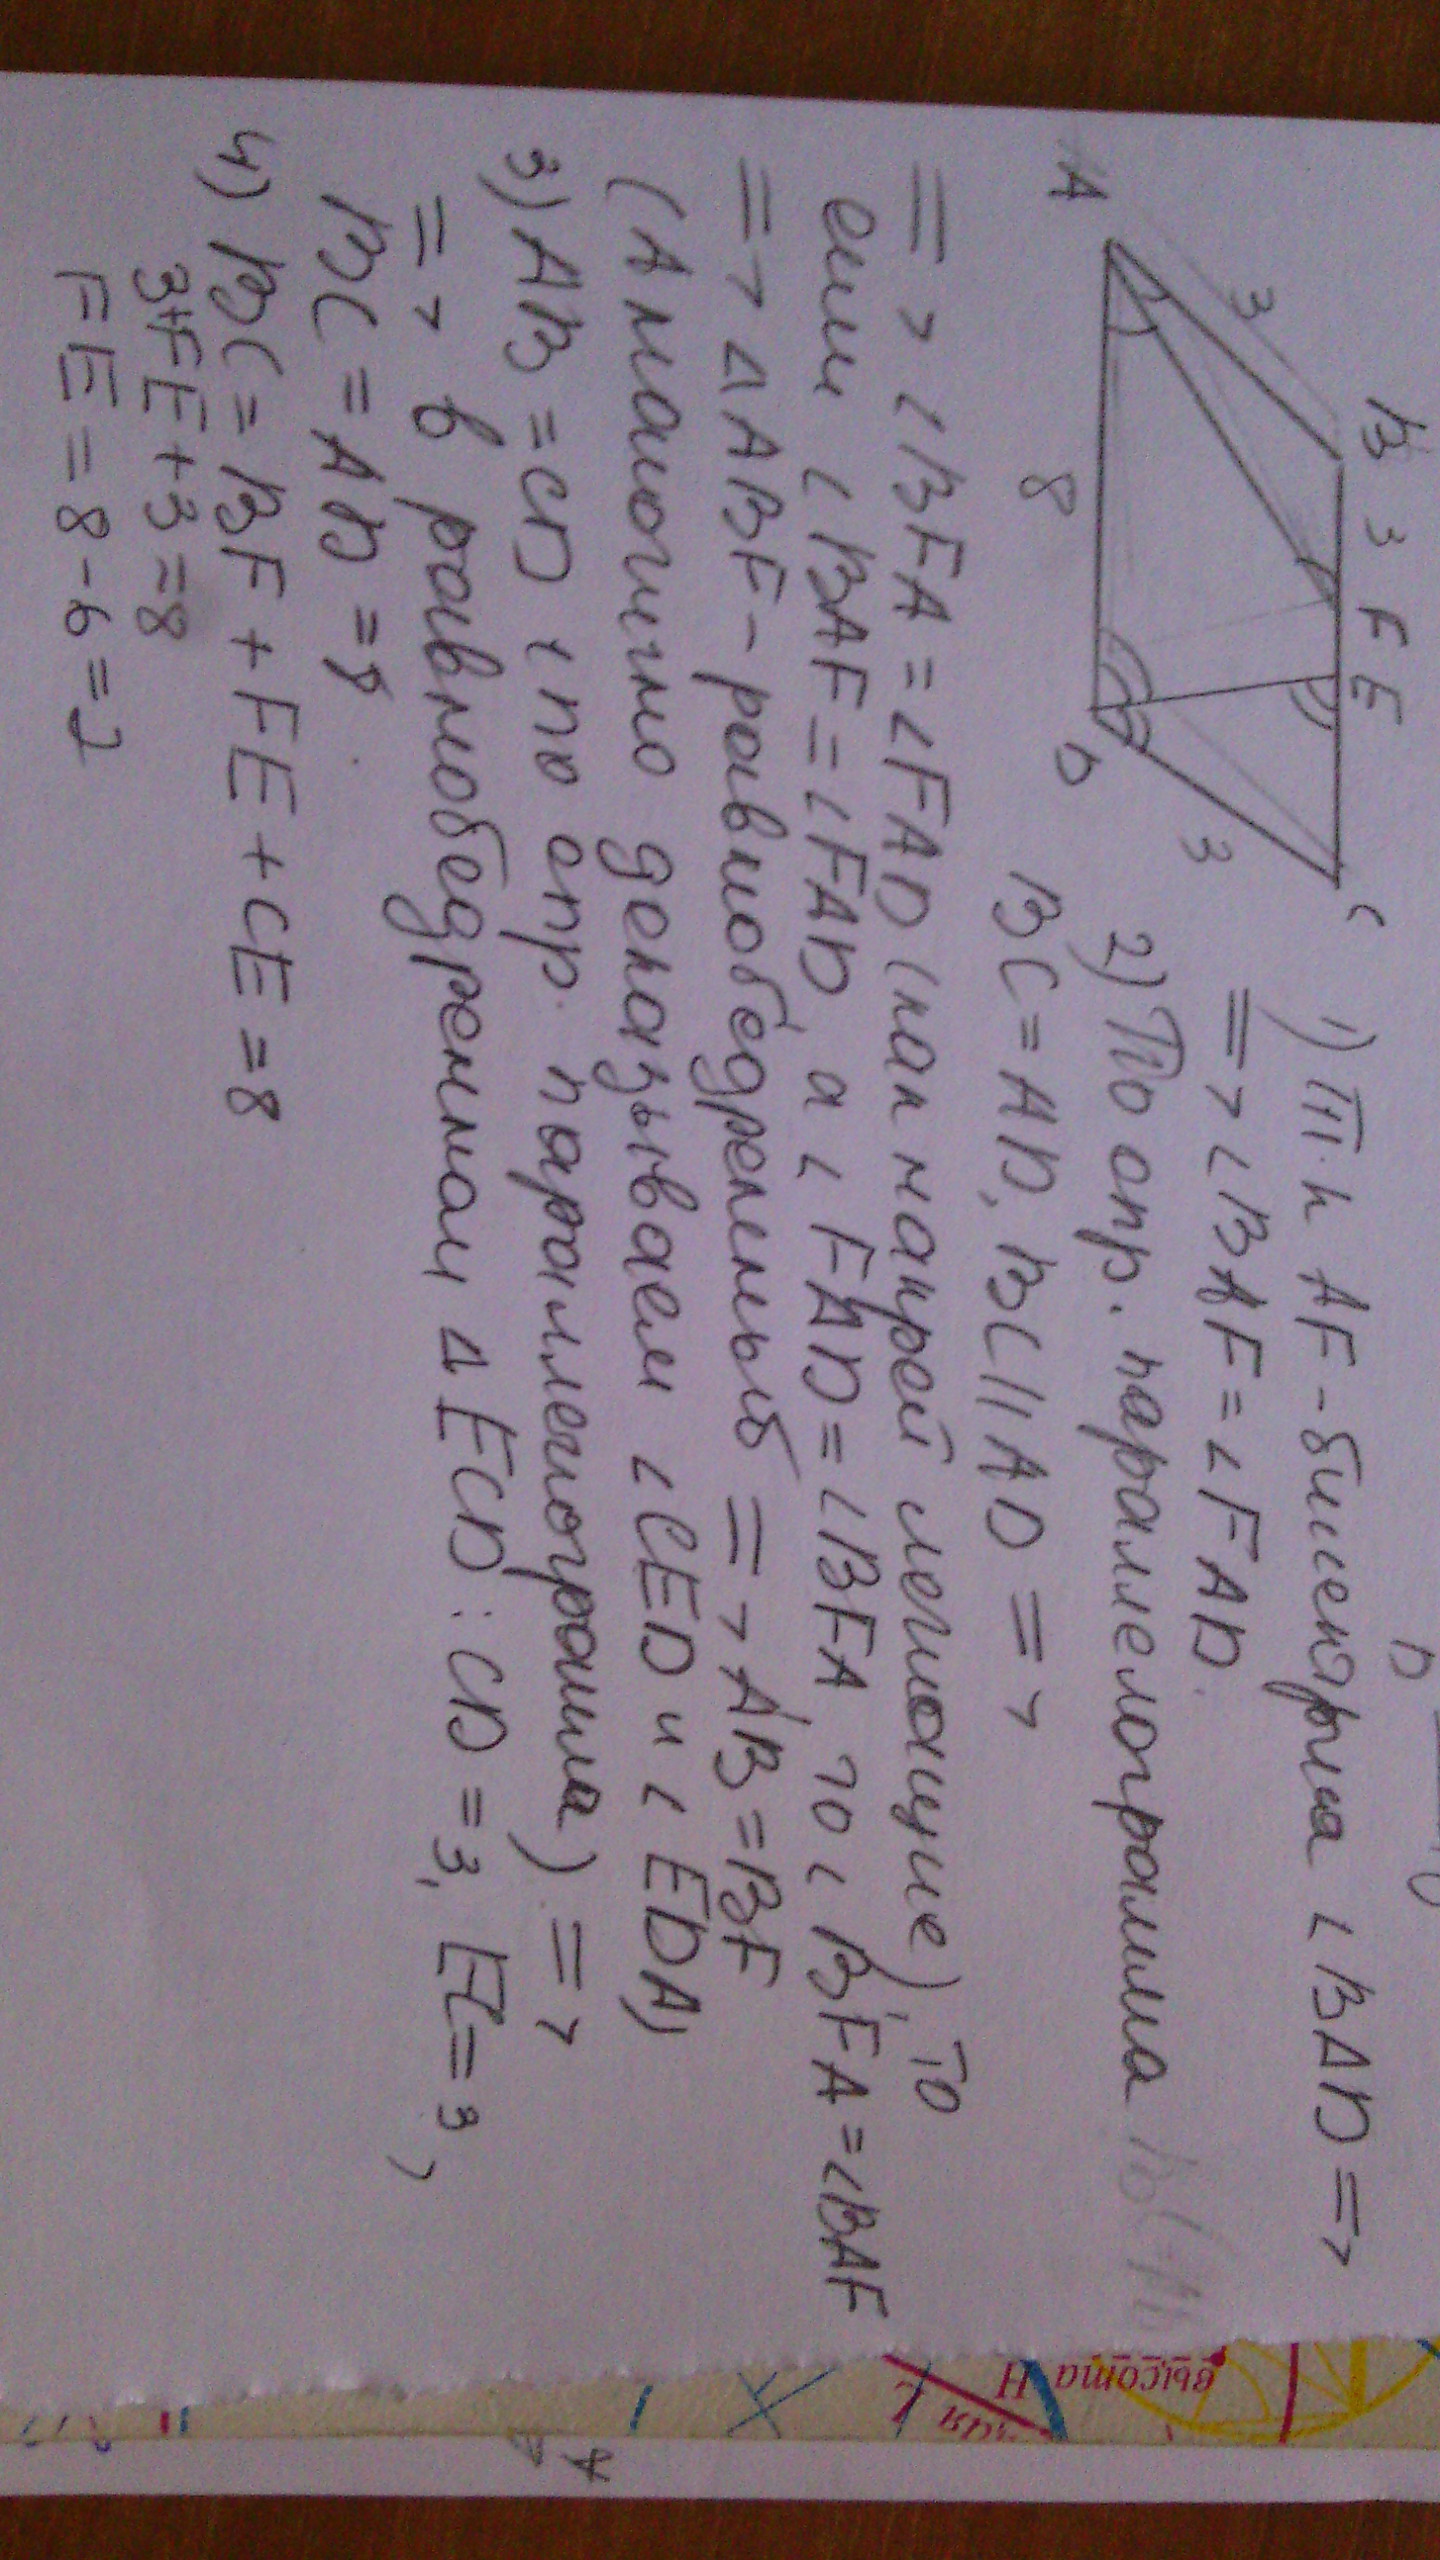 B 3 F E C
3
3
A 8 D
1) Т. к AF - биссектриса ∠BAD =>
=> ∠BAF = ∠FAD.
2) По опр. параллелограмма
BC = AD, BC || AD =>
=> ∠BFA = ∠FAD (как накрей лежащие), то
если ∠BAF = ∠FAD, а ∠FAD = ∠BFA то ∠BFA = ∠BAF
=> ΔABF - равнобедренный => AB = BF
(Аналогично доказываем ∠CED и ∠EDA)
3) AB = CD (по опр. параллелограмма) =>
=> в равнобедренном ΔECD : CD = 3, EC = 3,
BC = AD = 8.
4) BC = BF + FE + CE = 8
3+FE+3 = 8
FE = 8 - 6 = 2
D
высота H